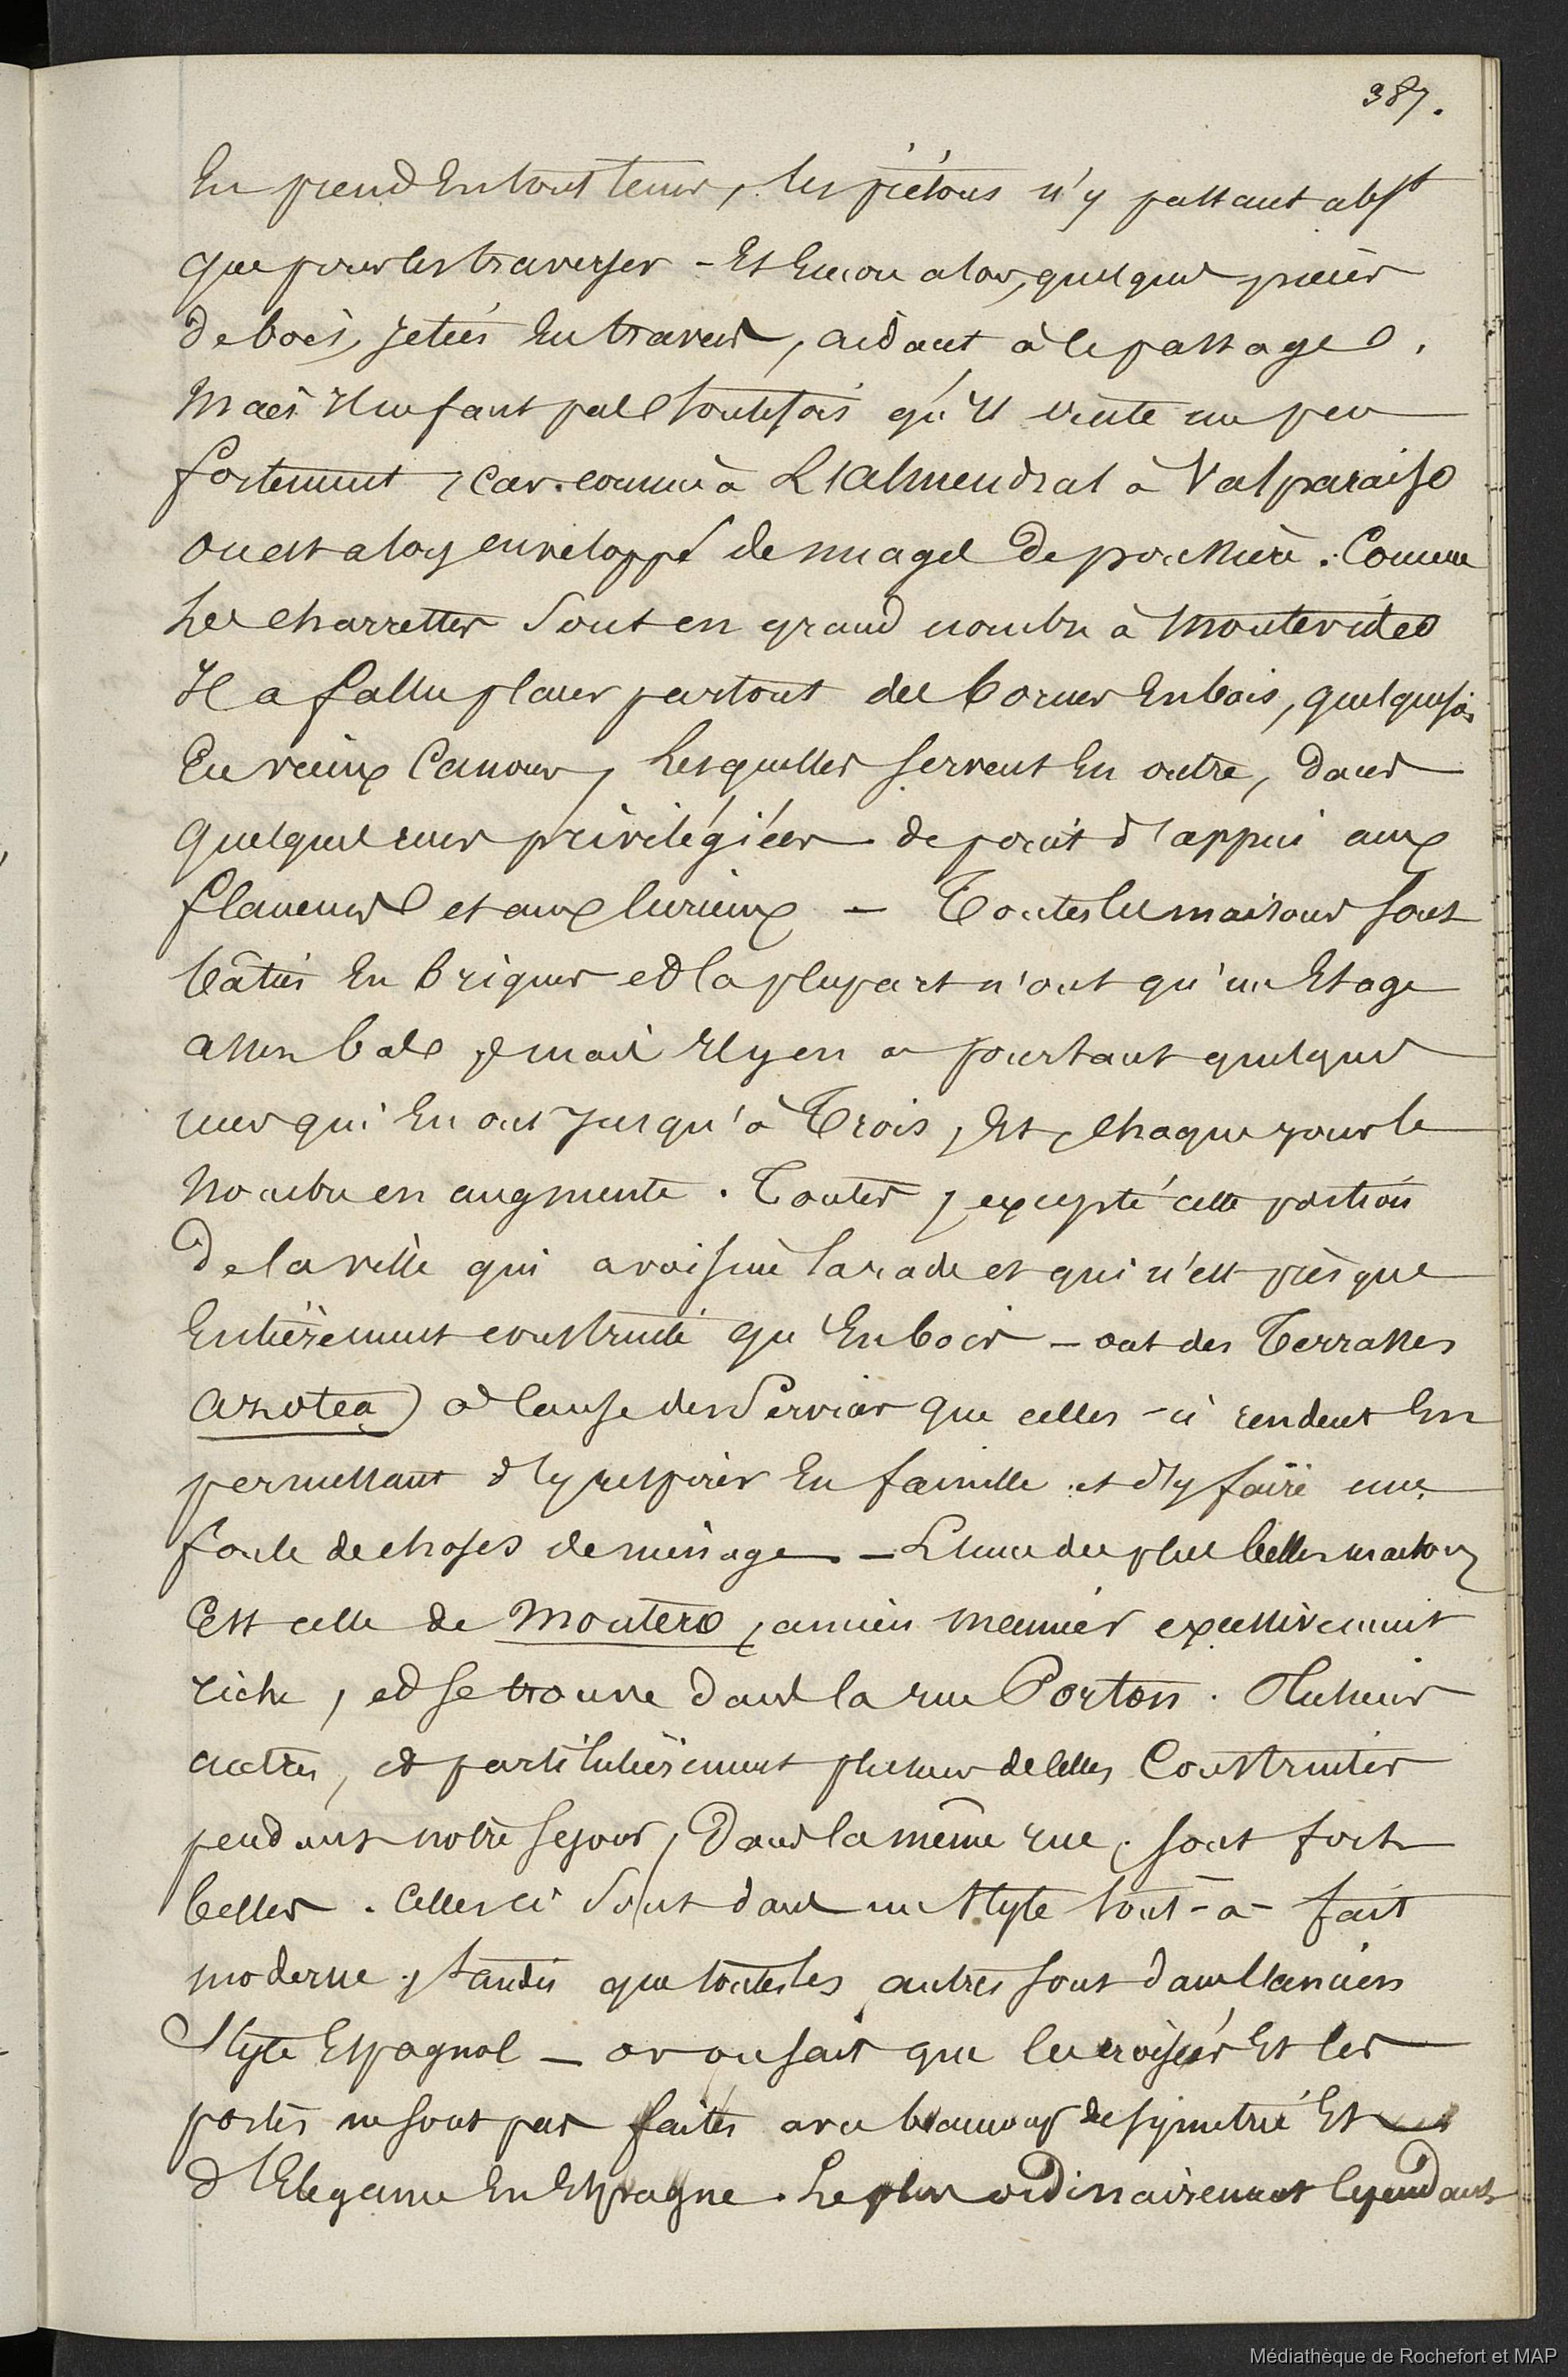 387.
En prend en tout tems, les piétons n'y passant abst
que pour les traverser - Et encore alors, quelques pièces
de bois, jetées en travers, aidant à le passage.
Mais il ne faut pas toutefois qu'il vente un peu
fortement, car comme à L'Almendral à Valparaiso
on est alors enveloppé de nuages de poussière. Comme
les charrettes sont en grand nombre à Montevideo
Il a fallu placer partout des bornes en bois, quelquefois
en vieux canons, lesquelles servent en outre, dans
quelques rues privilégiées de point d'appui aux
flaneurs et aux curieux - Toutes les maisons sont
bâties en briques et la plupart n'ont qu'un Etage
assez bas, mais il y en a pourtant quelques
unes qui en ont jusqu'à Trois, et, chaque jour le
nombre en augmente. Toutes, excepté cette portion
de la ville qui avoisine la rade et qui n'est presque
entièrement construite qu'en bois - ont des Terrasses
azotea) à cause des services que celles-ci rendent en
permettant d'y respirer en famille et d'y faire une
foule de choses de ménage - L'une des plus belles maisons
Est celle de Montero, ancien meunier excessivement
riche, et se trouve dans la rue Porton. Plusieurs
autres, et particulièrement plusieurs de celles construites
pendant notre séjour, dans la même rue, sont fort
belles. Celles ci sont dans un style tout-à-fait
moderne, tandis que toutes les autres sont dans l'ancien
Style Espagnol - or on sait que les croisées et les
portes ne sont pas faites avec beaucoup de symetrie et
d'Elegance en Espagne. Le plus ordinairement cependant
Médiathèque de Rochefort et MAP